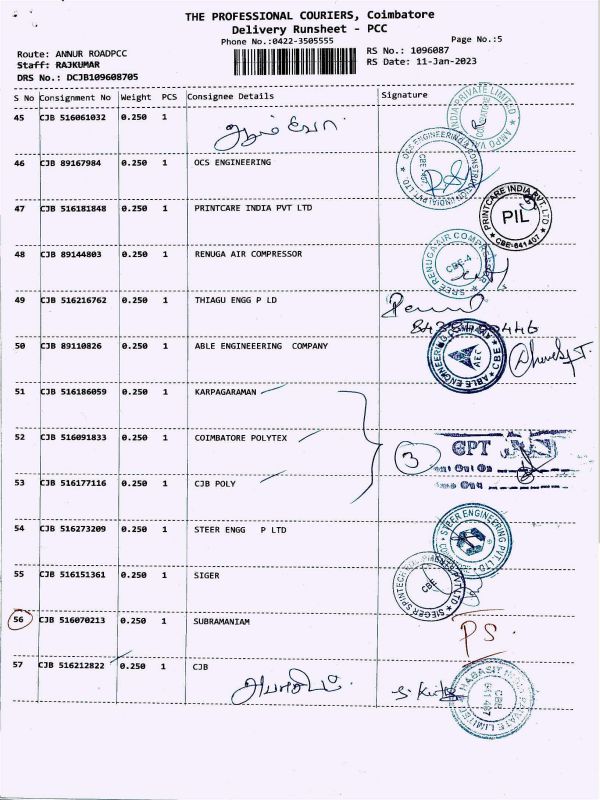 THE PROFESSIONAL COURIERS, Coimbatore
Delivery Runsheet - PCC
Phone No.:0422-3505555
Page No.:5
Route: ANNUR ROADPCC
RS No.: 1096087
Staff: RAJKUMAR
RS Date: 11-Jan-2023
DRS No.: DCJB109608705
S No Consignment No Weight PCS Consignee Details Signature
45 CJB 516061032 0.250 1
46 CJB 89167984 0.250 1 OCS ENGINEERING
47 CJB 516181848 0.250 1 PRINTCARE INDIA PVT LTD
PRINTCARE INDIA PVT. LTD.
PIL
CBE-641407
48 CJB 89144803 0.250 1 RENUGA AIR COMPRESSOR
SREE RENUGA AIR COMPRESSOR
CBE-4
49 CJB 516216762 0.250 1 THIAGU ENGG P LD
50 CJB 89110826 0.250 1 ABLE ENGINEEERING COMPANY
ABLE ENGINEERING COMPANY
CBE
AEC
51 CJB 516186059 0.250 1 KARPAGARAMAN
52 CJB 516091833 0.250 1 COIMBATORE POLYTEX
3
53 CJB 516177116 0.250 1 CJB POLY
54 CJB 516273209 0.250 1 STEER ENGG P LTD
STEER ENGINEERING PVT. LTD.
55 CJB 516151361 0.250 1 SIGER
CBE
56 CJB 516070213 0.250 1 SUBRAMANIAM
P.S.
57 CJB 516212822 0.250 1 CJB
HABASIT PRIVATE LIMITED
CBE
641 407